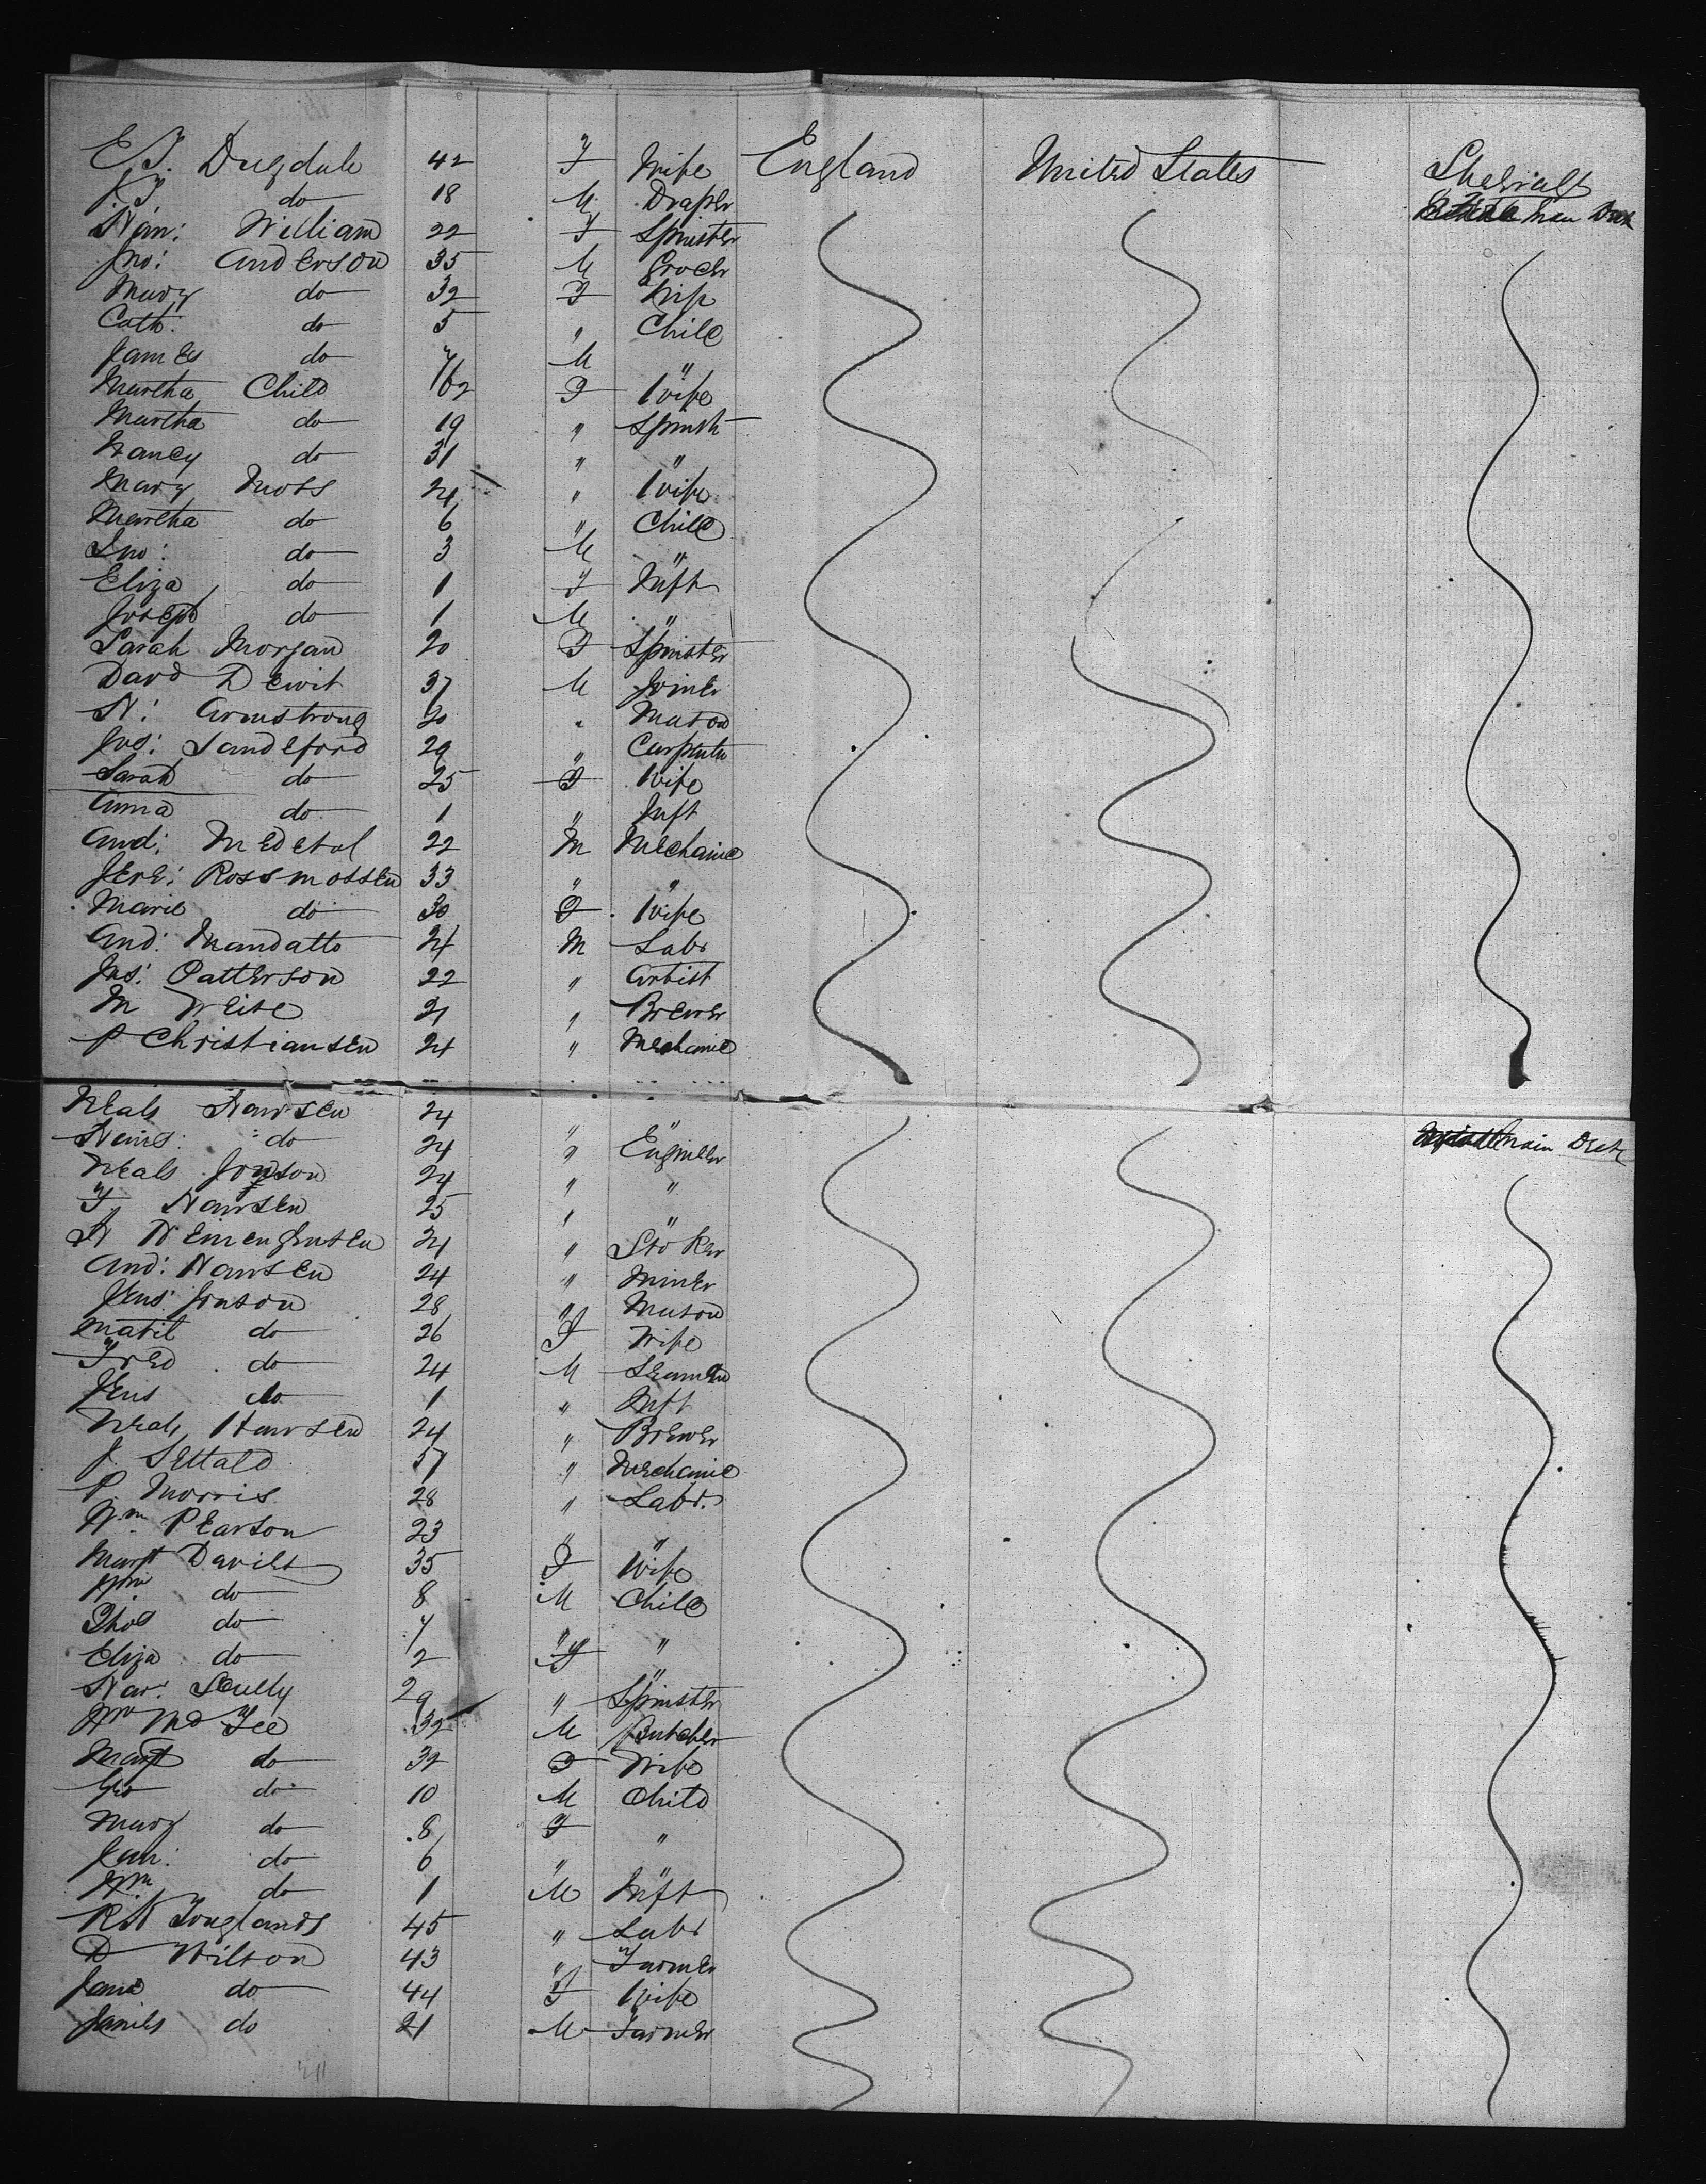 E. J. Dugdale 42 F Wife England United States
J. J. do 18 M Draper
Han: William 22 F Spinster
Jno: Anderson 35 M Grocer
Mary do 32 F Wife
Cath: do 5 " Child
James do M "
Martha Child F Wife
Martha do 19 " Spinstr
Nancy do 31 " "
Mary Moss 24 " Wife
Martha do 6 " Child
Jno: do 3 M "
Eliza do 1 F Inft
Joseph do 1 M "
Sarah Morgan 20 F Spinster
Davd Dewit 37 M Joiner
H: Armstrong 20 " Mason
Jos: Sandeford 29 " Carpentr
Sarah do 25 F Wife
Anna do 1 " Inft
And: 22 M Mechanic
Jere: Rossmossen 33 " "
Marie do 30 F Wife
And: Mandatto 24 M Labr
Jas: Patterson 22 " Artist
M Weise 21 " Brewer
P Christiansen 24 " Mechanic
Neals Hansen 24 " "
Hans: do 24 " Engineer
Neals Jonson 24 " "
F Hansen 25 " "
H 24 " Stoker
And: Hansen 24 " Miner
Jens: Jonson 28 " Mason
Matil do 26 F Wife
Fred do 24 M Seaman
Jens do 1 " Inft
Neals Hansen 24 " Brewer
J. Settald 57 " Mechanic
P. Morris 28 " Labr.
Wm Pearson 23 " "
Margt Davies 35 F Wife
Wm do 8 M Child
Thos do 7 " "
Eliza do 2 F "
Har: Scully 29 " Spinster
Wm McFee 32 M Butcher
Margt do 32 F Wife
Geo do 10 M Child
Mary do 8 F "
Jean: do 6 " "
Wm do 1 M Inft
R K Fouglands 45 " Labr
D Wilson 43 " Farmer
Jane do 44 F Wife
James do 21 M Farmer